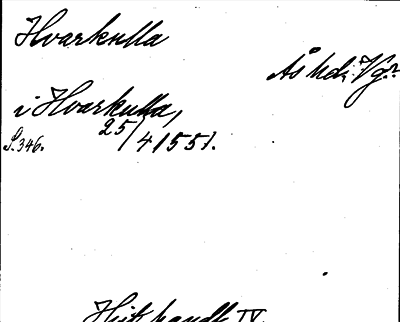 Hvarkulla
Ås hd; Vg.
i Hvarkulla,
S. 346. 25/4 1551.
Hist. handl. IV.